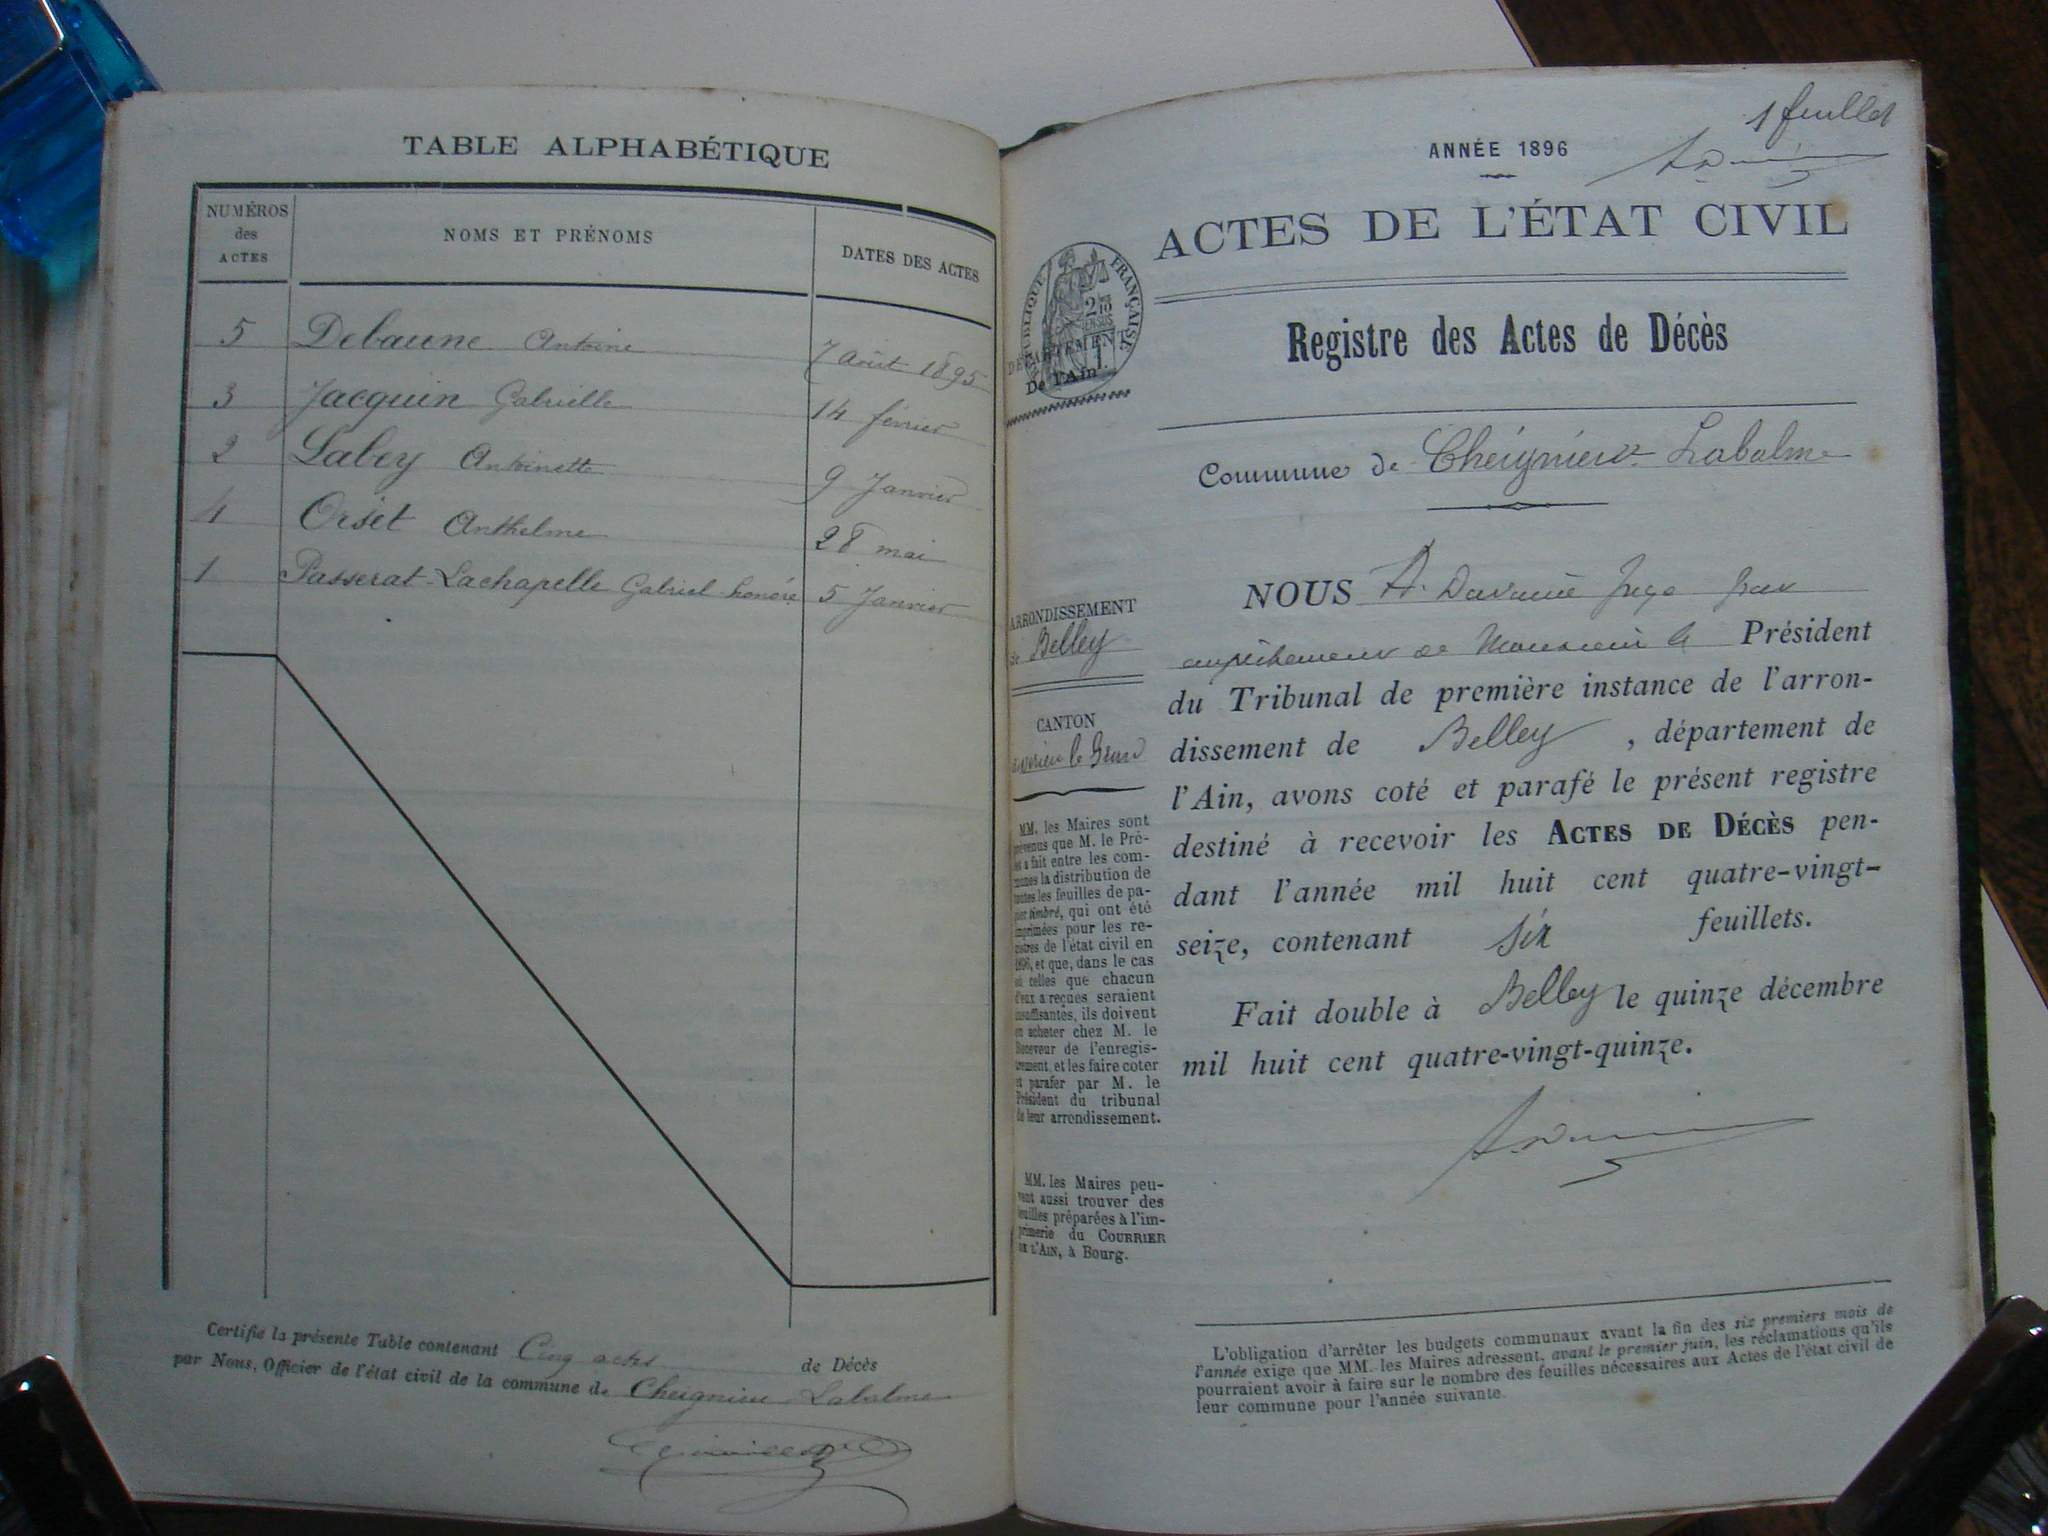 TABLE ALPHABÉTIQUE
NUMÉROS
des
ACTES
NOMS ET PRÉNOMS
DATES DES ACTES
5 Debaune Antoine 7 Août 1895
3 Jacquin Gabrielle 14 février
2 Labey Antoinette 9 Janvier
4 Orset Anthelme 28 mai
1 Passerat-Lachapelle Gabriel-honoré 5 Janvier
Certifié la présente Table contenant Cinq actes de Décès
par Nous, Officier de l'état civil de la commune de Cheignieu Labalme
1 feuillet
ANNÉE 1896
ACTES DE L'ÉTAT CIVIL
RÉPUBLIQUE FRANÇAISE
DÉPARTEMENT
De l'Ain
Registre des Actes de Décès
Commune de Cheignieu Labalme
ARRONDISSEMENT
de Belley
CANTON
le Grand
MM. les Maires sont
prévenus que M. le Pré-
fet a fait entre les com-
munes la distribution de
toutes les feuilles de pa-
pier timbré, qui ont été
imprimées pour les re-
gistres de l'état civil en
1896, et que, dans le cas
où celles que chacun
d'eux a reçues seraient
insuffisantes, ils doivent
en acheter chez M. le
Receveur de l'enregis-
trement, et les faire coter
et parafer par M. le
Président du tribunal
de leur arrondissement.
MM. les Maires peu-
vent aussi trouver des
feuilles préparées à l'im-
primerie du COURRIER
DE L'AIN, à Bourg.
NOUS A. Juge pour
empêchement de Monsieur le Président
du Tribunal de première instance de l'arron-
dissement de Belley, département de
l'Ain, avons coté et parafé le présent registre
destiné à recevoir les ACTES DE DÉCÈS pen-
dant l'année mil huit cent quatre-vingt-
seize, contenant six feuillets.
Fait double à Belley le quinze décembre
mil huit cent quatre-vingt-quinze.
L'obligation d'arrêter les budgets communaux avant la fin des six premiers mois de
l'année exige que MM. les Maires adressent, avant le premier juin, les réclamations qu'ils
pourraient avoir à faire sur le nombre des feuilles nécessaires aux Actes de l'état civil de
leur commune pour l'année suivante.